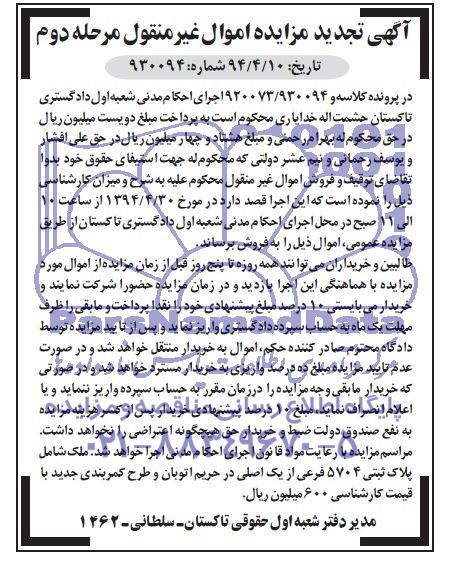 آگهی تجدید مزایده اموال غیرمنقول مرحله دوم
تاریخ: ۹۴/۴/۱۰ شماره: ۹۳۰۰۹۴
در پرونده کلاسه و ۹۲۰۰۷۳/۹۳۰۰۹۴ اجرای احکام مدنی شعبه اول دادگستری
تاکستان حشمت اله خدایاری محکوم است به پرداخت مبلغ دویست میلیون ریال
در حق محکوم له بهرام رحمی و مبلغ هشتاد و چهار میلیون ریال در حق علی افشار
و یوسف رحمانی و نیم عشر دولتی که محکوم له جهت استیفای حقوق خود بدوا
تقاضای توقیف و فروش اموال غیر منقول محکوم علیه به شرح و میزان کارشناسی
ذیل را نموده است که این اجرا قصد دارد در مورخ ۱۳۹۴/۴/۳۰ از ساعت ۱۰
الی ۱۱ صبح در محل اجرای احکام مدنی شعبه اول دادگستری تاکستان از طریق
مزایده عمومی، اموال ذیل را به فروش برساند.
طالبین و خریداران می توانند همه روزه تا پنج روز قبل از زمان مزایده از اموال مورد
مزایده با هماهنگی این اجرا بازدید و در زمان مزایده حضورا شرکت نمایند و
خریدار می بایستی ۱۰ درصد مبلغ پیشنهادی خود را نقدا پرداخت و مابقی را ظرف
مهلت یک ماه به حساب سپرده دادگستری واریز نماید و پس از تایید مزایده توسط
دادگاه محترم صادر کننده حکم، اموال به خریدار منتقل خواهد شد و در صورت
عدم تایید مزایده مبلغ ده درصد واریزی به خریدار مسترد خواهد شد و در صورتی
که خریدار مابقی وجه مزایده را در زمان مقرر به حساب سپرده واریز ننماید و یا
اعلام انصراف نماید، مبلغ ۱۰ درصد پیشنهادی خریدار پس از کسر هزینه مزایده
به نفع صندوق دولت ضبط و خریدار حق هیچگونه اعتراضی را نخواهد داشت.
مراسم مزایده با رعایت مواد قانون اجرای احکام مدنی اجرا خواهد شد. ملک شامل
پلاک ثبتی ۵۷۰۴ فرعی از یک اصلی در حریم اتوبان و طرح کمربندی جدید با
قیمت کارشناسی ۶۰۰ میلیون ریال.
مدیر دفتر شعبه اول حقوقی تاکستان ـ سلطانی ـ ۱۴۶۲
ParsNamadData
پایگاه اطلاع رسانی مناقصه و مزایده
۰۲۱-۸۸۳۴۹۶۷۰-۵